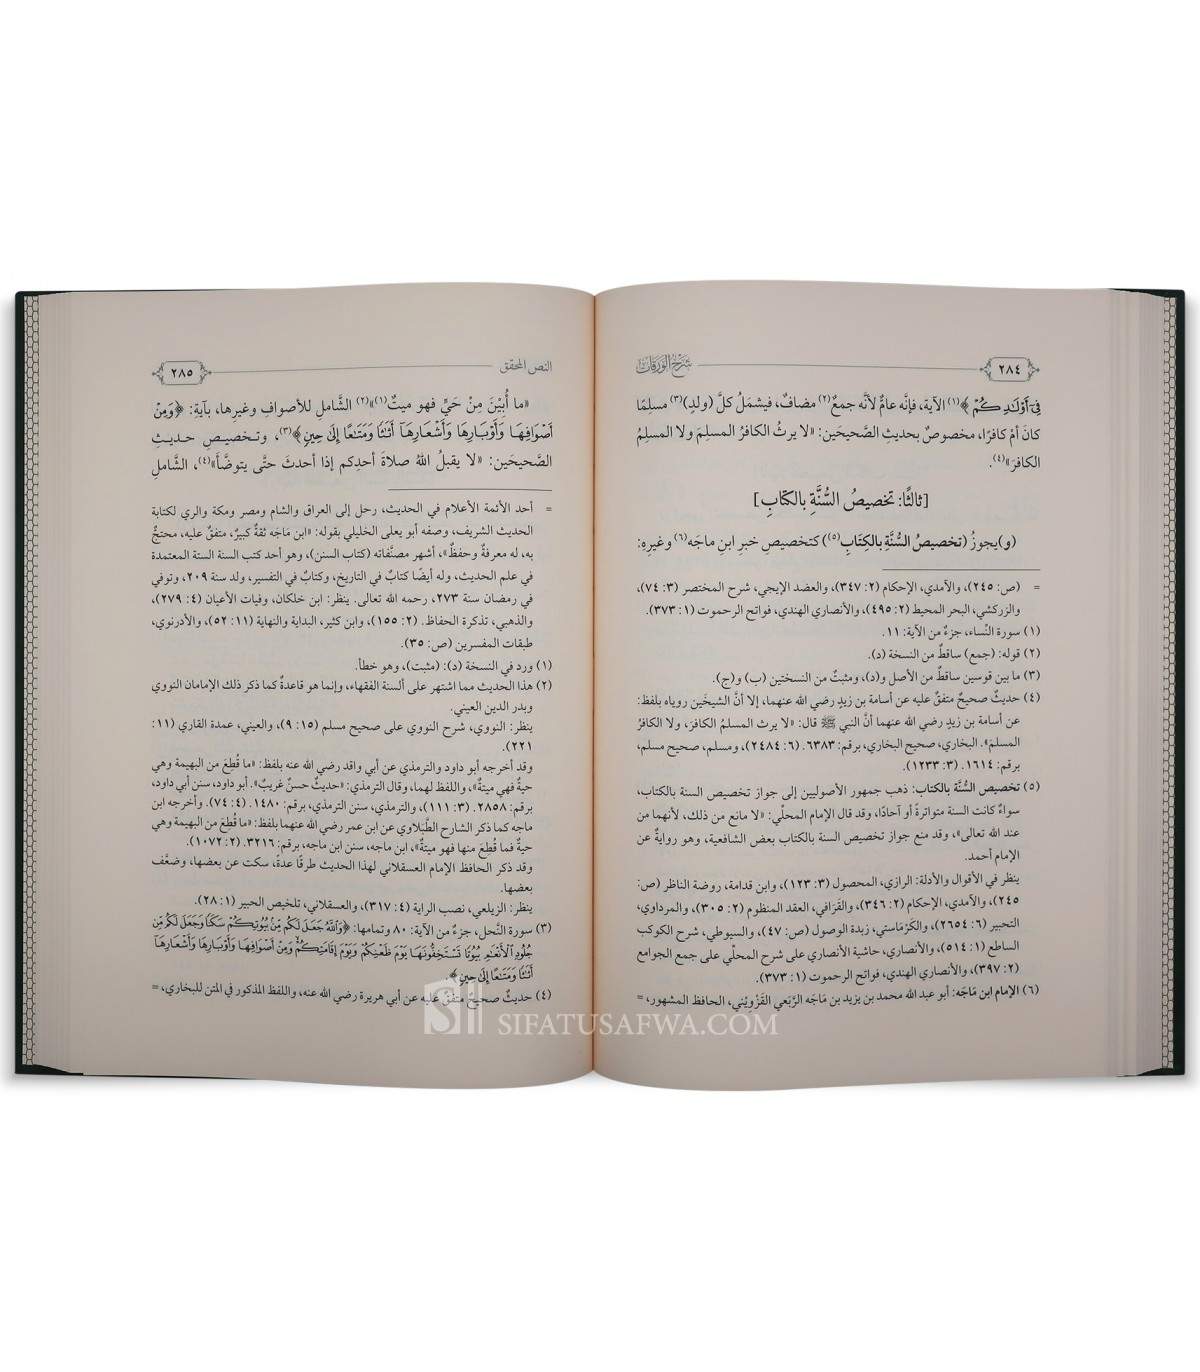 شرح الورقات
٢٨٤
فِيٓ أَوۡلَٰدِكُمۡ﴾(١) الآية، فإنَّه عامٌّ لأنَّه جمعٌ(٢) مضافٌ، فيشمَلُ كلَّ (ولدٍ)(٣) مسلِمًا
كانَ أمْ كافرًا، مخصوصٌ بحديثِ الصَّحيحَين: «لا يرثُ الكافرُ المسلِمَ ولا المسلِمُ
الكافرَ»(٤).
[ثالثًا: تخصيصُ السُّنَّةِ بالكتابِ]
(و) يجوزُ (تخصيصُ السُّنَّةِ بالكتَابِ(٥)) كتخصيصِ خبرِ ابنِ ماجَه(٦) وغيرِه:
= (ص: ٢٤٥)، والآمدي، الإحكام (٢: ٣٤٧)، والعضد الإيجي، شرح المختصر (٣: ٧٤)،
والزركشي، البحر المحيط (٢: ٤٩٥)، والأنصاري الهندي، فواتح الرحموت (١: ٣٧٣).
(١) سورة النِّساء، جزءٌ من الآية: ١١.
(٢) قوله: (جمع) ساقطٌ من النسخة (د).
(٣) ما بين قوسين ساقطٌ من الأصل و(د)، ومثبتٌ من النسختين (ب) و(ج).
(٤) حديثٌ صحيحٌ متفقٌ عليه عن أسامة بن زيدٍ رضي الله عنهما، إلا أنَّ الشيخَين روياه بلفظ:
عن أسامة بن زيد رضي الله عنهما أنَّ النبي ﷺ قال: «لا يرث المسلمُ الكافرَ، ولا الكافرُ
المسلمَ». البخاري، صحيح البخاري، برقم: ٦٣٨٣. (٦: ٢٤٨٤)، ومسلم، صحيح مسلم،
برقم: ١٦١٤. (٣: ١٢٣٣).
(٥) تخصيص السُّنَّة بالكتاب: ذهب جمهور الأصوليين إلى جواز تخصيص السنة بالكتاب،
سواءٌ كانت السنة متواترةً أو آحادًا، وقد قال الإمام المحلّي: «لا مانع من ذلك، لأنهما من
عند الله تعالى»، وقد منع جواز تخصيص السنة بالكتاب بعض الشافعية، وهو روايةٌ عن
الإمام أحمد.
ينظر في الأقوال والأدلة: الرازي، المحصول (٣: ١٢٣)، وابن قدامة، روضة الناظر (ص:
٢٤٥)، والآمدي، الإحكام (٢: ٣٤٦)، والقَرَافي، العقد المنظوم (٢: ٣٠٥)، والمرداوي،
التحبير (٦: ٢٦٥٤)، والكَرَماستي، زبدة الوصول (ص: ٤٧)، والسيوطي، شرح الكوكب
الساطع (١: ٥١٤)، والأنصاري، حاشية الأنصاري على شرح المحلّي على جمع الجوامع
(٢: ٣٩٧)، والأنصاري الهندي، فواتح الرحموت (١: ٣٧٣).
(٦) الإمام ابن ماجَه: أبو عبد الله محمد بن يزيد بن ماجَه الرَّبَعي القَزْوِيْني، الحافظ المشهور، =
النص المحقق
٢٨٥
«ما أُبِيْنَ مِنْ حَيٍّ فهو ميتٌ(١)»(٢) الشَّاملِ للأصوافِ وغيرِها، بآيةِ: ﴿وَمِنۡ
أَصۡوَافِهَا وَأَوۡبَارِهَا وَأَشۡعَارِهَآ أَثَٰثٗا وَمَتَٰعًا إِلَىٰ حِينٖ﴾(٣)، وتخصيصِ حديثِ
الصَّحيحَين: «لا يقبلُ اللهُ صلاةَ أحدِكم إذا أحدثَ حتَّى يتوضَّأَ»(٤)، الشَّاملِ
= أحد الأئمة الأعلام في الحديث، رحل إلى العراق والشام ومصر ومكة والري لكتابة
الحديث الشريف، وصفه أبو يعلى الخليلي بقوله: «ابن ماجَه ثقةٌ كبيرٌ، متفقٌ عليه، محتجٌّ
به، له معرفةٌ وحفظٌ»، أشهر مصنَّفاته (كتاب السنن)، وهو أحد كتب السنة الستة المعتمدة
في علم الحديث، وله أيضًا كتابٌ في التاريخ، وكتابٌ في التفسير، ولد سنة ٢٠٩، وتوفي
في رمضان سنة ٢٧٣، رحمه الله تعالى. ينظر: ابن خلكان، وفيات الأعيان (٤: ٢٧٩)،
والذهبي، تذكرة الحفاظ. (٢: ١٥٥)، وابن كثير، البداية والنهاية (١١: ٥٢)، والأدرنوي،
طبقات المفسرين (ص: ٣٥).
(١) ورد في النسخة (د): (مثبت)، وهو خطأ.
(٢) هذا الحديث مما اشتهر على ألسنة الفقهاء، وإنما هو قاعدةٌ كما ذكر ذلك الإمامان النووي
وبدر الدين العيني.
ينظر: النووي، شرح النووي على صحيح مسلم (١٥: ٩)، والعيني، عمدة القاري (١١:
٢٢١).
وقد أخرجه أبو داود والترمذي عن أبي واقد رضي الله عنه بلفظ: «ما قُطِعَ من البهيمة وهي
حيةٌ فهي ميتةٌ»، واللفظ لهما، وقال الترمذي: «حديثٌ حسنٌ غريبٌ». أبو داود، سنن أبي داود،
برقم: ٢٨٥٨. (٣: ١١١)، والترمذي، سنن الترمذي، برقم: ١٤٨٠. (٤: ٧٤). وأخرجه ابن
ماجه كما ذكر الشارح الطَّبَلاوي عن ابن عمر رضي الله عنهما بلفظ: «ما قُطِعَ من البهيمة وهي
حيةٌ فما قُطِعَ منها فهو ميتةٌ»، ابن ماجه، سنن ابن ماجه، برقم: ٣٢١٦. (٢: ١٠٧٢).
وقد ذكر الحافظ الإمام العسقلاني لهذا الحديث طرقًا عدةً، سكت عن بعضها، وضعَّف
بعضها.
ينظر: الزيلعي، نصب الراية (٤: ٣١٧)، والعسقلاني، تلخيص الحبير (١: ٢٨).
(٣) سورة النَّحل، جزءٌ من الآية: ٨٠ وتمامها: ﴿وَٱللَّهُ جَعَلَ لَكُم مِّنۢ بُيُوتِكُمۡ سَكَنٗا وَجَعَلَ لَكُم مِّن
جُلُودِ ٱلۡأَنۡعَٰمِ بُيُوتٗا تَسۡتَخِفُّونَهَا يَوۡمَ ظَعۡنِكُمۡ وَيَوۡمَ إِقَامَتِكُمۡ وَمِنۡ أَصۡوَافِهَا وَأَوۡبَارِهَا وَأَشۡعَارِهَآ
أَثَٰثٗا وَمَتَٰعًا إِلَىٰ حِينٖ﴾.
(٤) حديثٌ صحيحٌ متفقٌ عليه عن أبي هريرة رضي الله عنه، واللفظ المذكور في المتن للبخاري، =
SIFATUSAFWA.COM